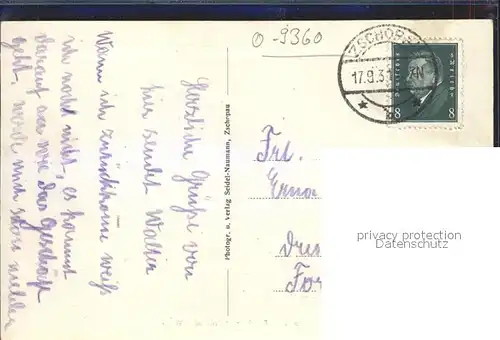 0-9360
ZSCHOP
17.9.3
8 8
Herzliche Grüße von
hier sendet Walter
Wann ich zurückkomme weiß
ich noch nicht, es kommt
darauf an wie das Geschäft
geht, werde mich schon melden
Photogr. u. Verlag Seidel-Naumann, Zschopau
Frl.
Erna
Dres
For
privacy protection
Datenschutz